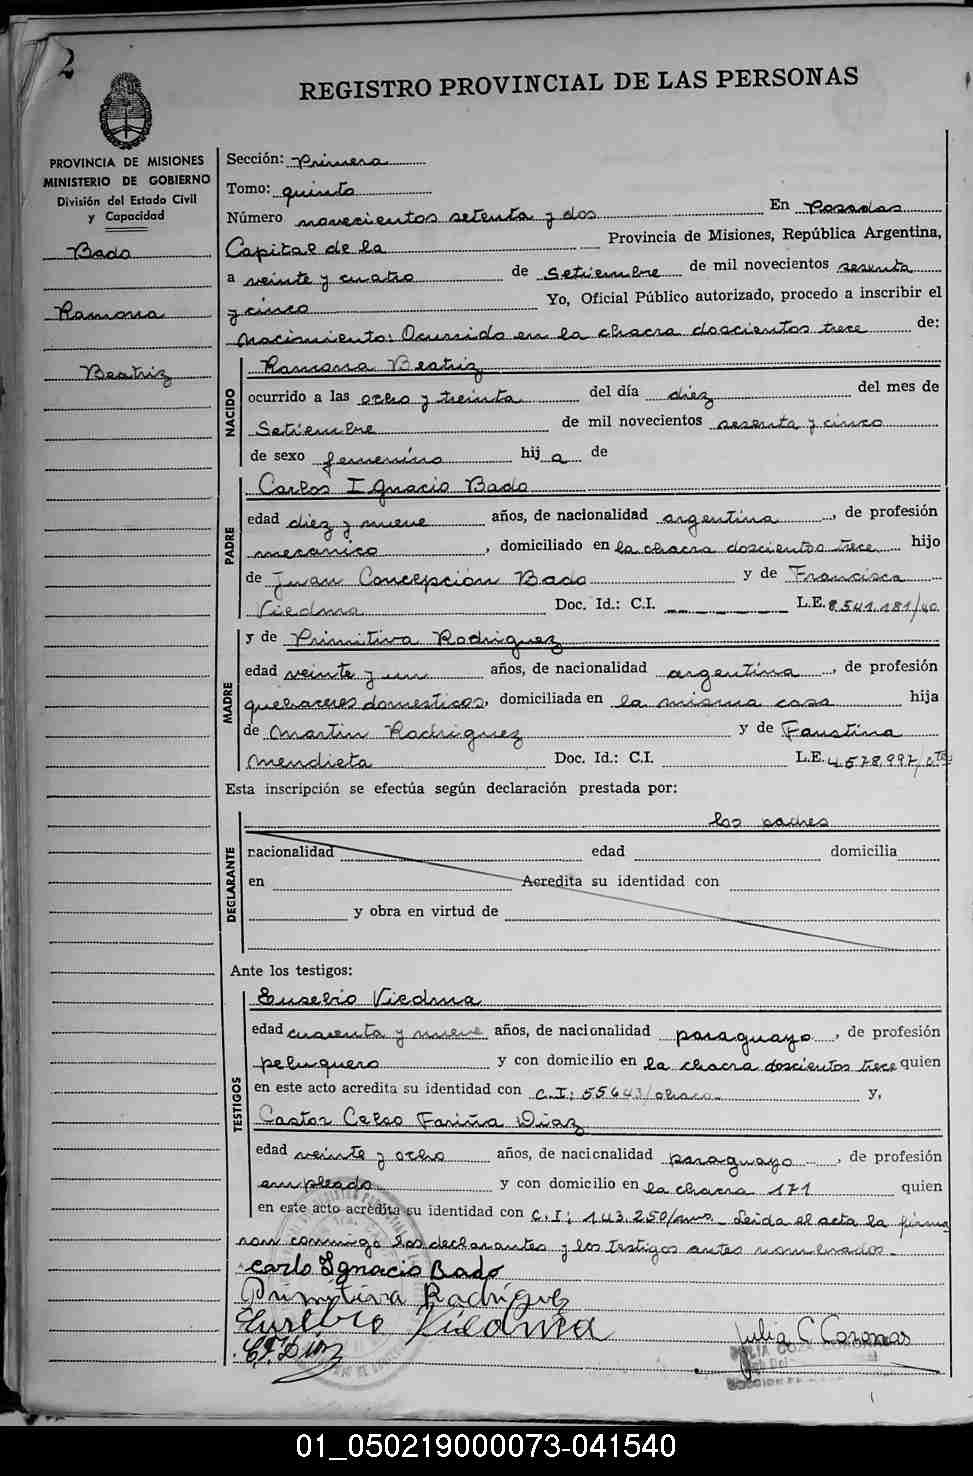 2
REGISTRO PROVINCIAL DE LAS PERSONAS
PROVINCIA DE MISIONES
MINISTERIO DE GOBIERNO
División del Estado Civil
y Capacidad
Bado
Ramona
Beatriz
Sección: Primera
Tomo: quinto
Número novecientos setenta y dos En Posadas
Capital de la Provincia de Misiones, República Argentina,
a veinte y cuatro de Setiembre de mil novecientos sesenta
y cinco Yo, Oficial Público autorizado, procedo a inscribir el
Nacimiento: Ocurrido en la chacra doscientos trece de:
NACIDO
Ramona Beatriz
ocurrido a las ocho y treinta del día diez del mes de
Setiembre de mil novecientos sesenta y cinco
de sexo femenino hij a de
PADRE
Carlos Ignacio Bado
edad diez y nueve años, de nacionalidad argentina, de profesión
mecanico, domiciliado en la chacra doscientos trece hijo
de Juan Concepción Bado y de Francisca
Viedma Doc. Id.: C.I. L.E. 8.541.181/40
MADRE
y de Primitiva Rodriguez
edad veinte y un años, de nacionalidad argentina, de profesión
quehaceres domesticos, domiciliada en la misma casa hija
de Martin Rodriguez y de Faustina
Mendieta Doc. Id.: C.I. L.E. 4.578.997/
Esta inscripción se efectúa según declaración prestada por:
los padres
DECLARANTE
nacionalidad edad domicilia
en Acredita su identidad con
y obra en virtud de
Ante los testigos:
TESTIGOS
Eusebio Viedma
edad cuarenta y nueve años, de nacionalidad paraguayo, de profesión
peluquero y con domicilio en la chacra doscientos trece quien
en este acto acredita su identidad con C.I: 55643/chaco. y,
Castor Celso Fariña Diaz
edad veinte y ocho años, de nacionalidad paraguayo, de profesión
empleado y con domicilio en la chacra 171 quien
en este acto acredita su identidad con C.I; 143.250/mnes. Leida el acta la firma
ron conmigo los declarantes y los testigos antes nombrados.
carlo Ignacio Bado
Primitiva Rodríguez
Eusebio Viedma
C.F. Diaz
Julia C Coronas
01_050219000073-041540